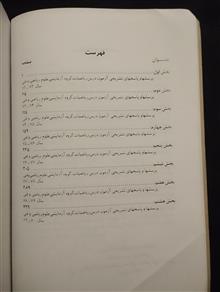 فهرست
عنـــوان صفحه
بخش اول
پرسشها و پاسخهای تشریحی آزمون درس ریاضیات گروه آزمایشی علوم ریاضی و فنی
سال
بخش دوم
پرسشها و پاسخهای تشریحی آزمون درس ریاضیات گروه آزمایشی علوم ریاضی و فنی
سال
بخش سوم
پرسشها و پاسخهای تشریحی آزمون درس ریاضیات گروه آزمایشی علوم ریاضی و فنی
سال
بخش چهارم
پرسشها و پاسخهای تشریحی آزمون درس ریاضیات گروه آزمایشی علوم ریاضی و فنی
سال
بخش پنجم
پرسشها و پاسخهای تشریحی آزمون درس ریاضیات گروه آزمایشی علوم ریاضی و فنی
سال
بخش ششم
پرسشها و پاسخهای تشریحی آزمون درس ریاضیات گروه آزمایشی علوم ریاضی و فنی
سال
بخش هفتم
پرسشها و پاسخهای تشریحی آزمون درس ریاضیات گروه آزمایشی علوم ریاضی و فنی
سال
بخش هشتم
پرسشها و پاسخهای تشریحی آزمون درس ریاضیات گروه آزمایشی علوم ریاضی و فنی
سال